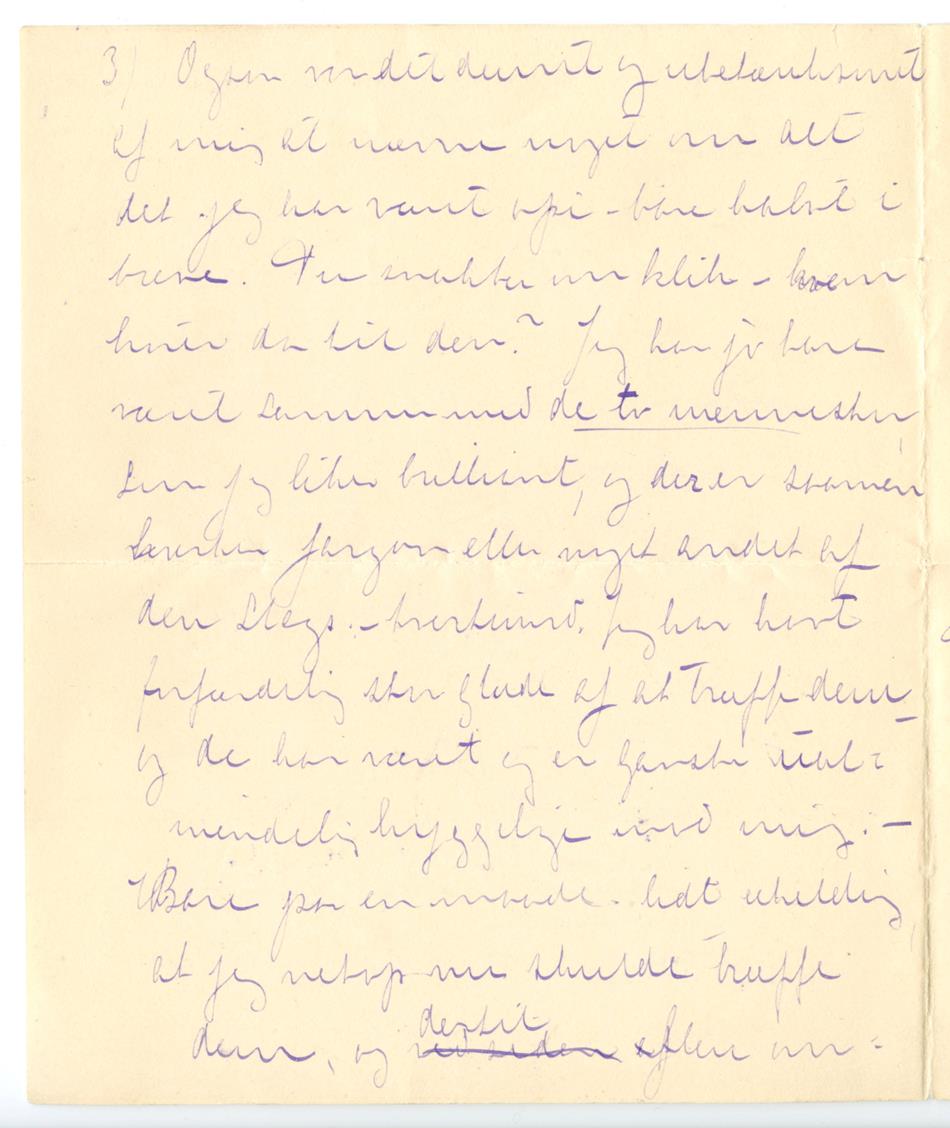 3) Ogsaa var det dumt og ubetænksomt
af mig at nævne noget om alt
det jeg har været opi – bare halvt i
breve. Du snakker om klik – hvem
hører da til den? Jeg har jo bare
været sammen med de to mennesker,
som jeg liker brilliant, og der er saamen
hverken jargon eller noget andet af
den Slags. – tvertimod. Jeg har havt
forfærdelig stor glæde af at træffe dem
og de har været og er ganske ual=
mindelig hyggelige imod mig. –
Bare paa en maade – lidt uheldig,
at jeg netop nu skulde træffe
dem, og ved siden dertil efter om=